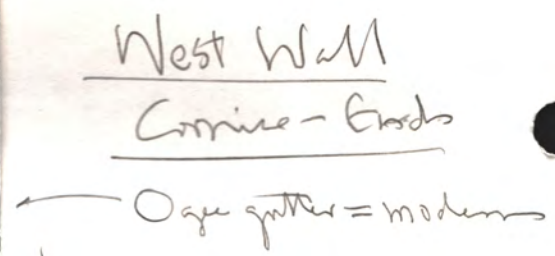 West Wall
Cornice - Ends
Ogee gutter = modern